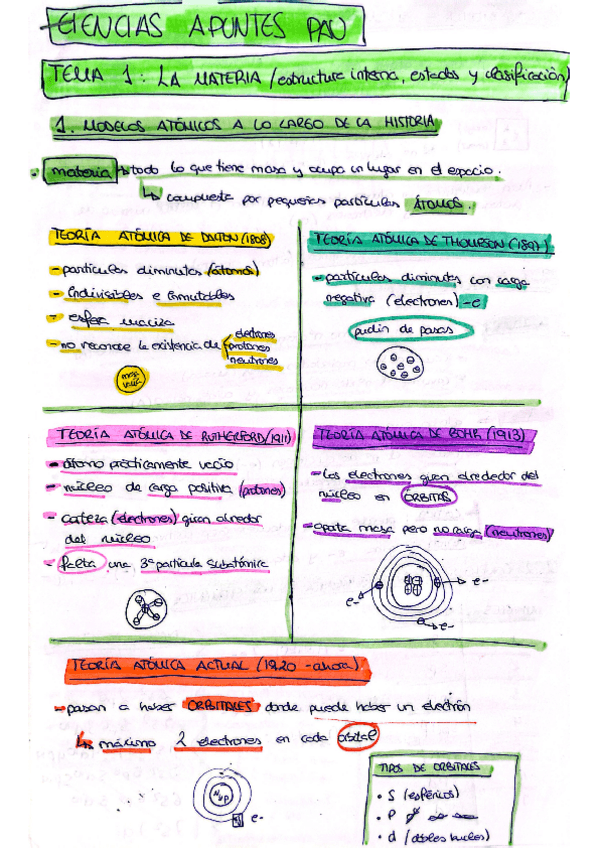 CIENCIAS APUNTES PAU
TEMA 1: LA MATERIA / estructura interna, estados y clasificación)
1. MODELOS ATÓMICOS A LO LARGO DE LA HISTORIA
materia → todo lo que tiene masa y ocupa un lugar en el espacio.
↳ compuesta por pequeñas partículas ÁTOMOS.
TEORÍA ATÓMICA DE DALTON (1808)
- partículas diminutas (átomos)
- Indivisibles e inmutables
- esfera maciza
- no reconoce la existencia de electrones
protones
neutrones
TEORÍA ATÓMICA DE THOMPSON (1897)
- partículas diminutas con carga
negativa (electrones) -e
pudin de pasas
TEORÍA ATÓMICA DE RUTHERFORD (1911)
- átomo prácticamente vacío
- núcleo de carga positiva (protones)
- corteza (electrones) giran alrededor
del núcleo
- Falta una 3ª partícula subatómica
TEORÍA ATÓMICA DE BOHR (1913)
- Los electrones giran alrededor del
núcleo en ÓRBITAS
- aporta masa pero no carga (neutrones)
e-
e-
e-
TEORÍA ATÓMICA ACTUAL (1920 - ahora)
- pasan a haber ORBITALES donde puede haber un electrón
↳ máximo 2 electrones en cada orbital
e-
TIPOS DE ORBITALES
• S (esféricos)
• P
• d (dobles